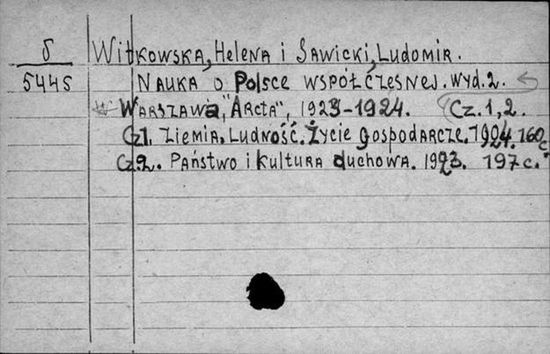 δ Witkowska, Helena i Sawicki, Ludomir.
5445 Nauka o Polsce współczesnej. Wyd. 2.
Warszawa, "Arcta", 1923-1924. Cz. 1, 2.
Cz1. Ziemia. Ludność. Życie gospodarcze. 1924. 160 c
Cz. 2. Państwo i kultura duchowa. 1923. 197 c.